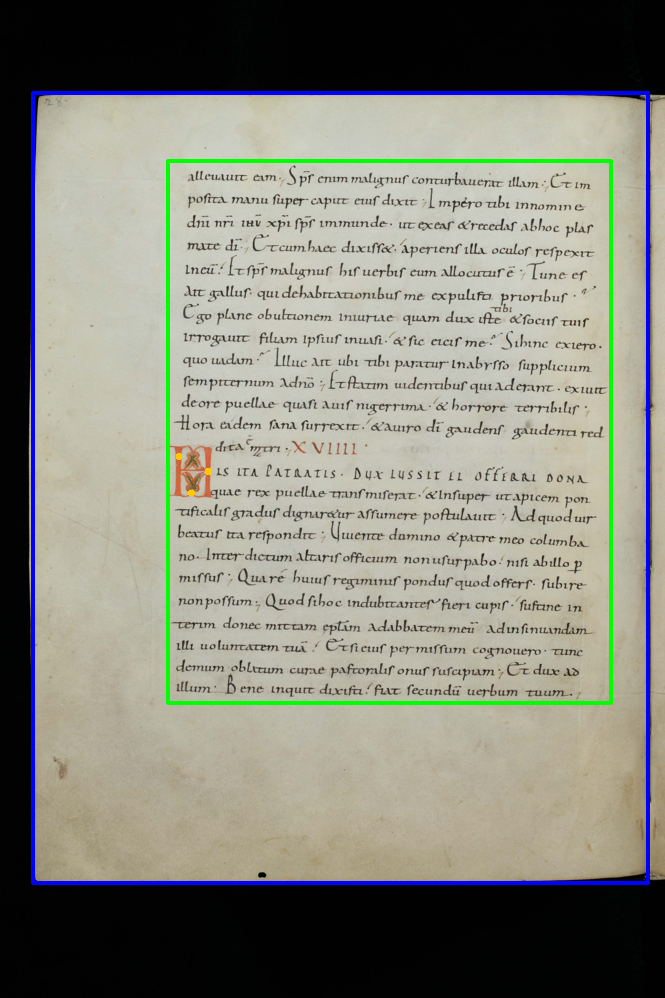 28
alleuauit eam ·, Sp̄s enim malignus conturbauerat illam ·, Et im
posita manu super caput eius dixit ·, Impero tibi innomine
dn̄i nr̄i ihū xp̄i sp̄s immunde · ut exeas &recedas abhoc plas
mate dī ·, Et cum haec dixiss& · aperiens illa oculos respexit
ineū · Et sp̄s malignus his uerbis eum allocutus ē ·, Tune es
Ait gallus · qui dehabitationibus me expulisti prioribus ·
Ego plane obultionem iniuriae quam dux iste tibi &sociis tuis
irrogauit filiam ipsius inuasi · &sic eicis me ? Sihinc exiero ·
quo uadam ? Illuc ait ubi tibi paratur inabysso supplicium
sempiternum adn̄o ·, Et statim uidentibus qui aderant · exiuit
deore puellae quasi auis nigerrima · &horrore terribilis ·,
Hora eadem sana surrexit · &auiro dī gaudens gaudenti red
dita ē mr̄i · XVIIII ·
HIS ITA PATRATIS · DUX IUSSIT EI OFFERRI DONA
quae rex puellae transmiserat · &insuper utapicem pon
tificalis gradus dignar&ur assumere postulauit ·, Ad quod uir
beatus ita respondit ·, Uiuente domino &patre meo columba
no · Interdictum altaris officium nonusurpabo · nisi abillo p̲
missus ·, Quare huius regiminis pondus quod offers · subire
nonpossum ·, Quod sihoc indubitantes fieri cupis · sustine in
terim donec mittam epl̄am adabbatem meū adinsinuandam
illi uoluntatem tuā · Et si eius permissum cognouero · tunc
demum oblatum curae pastoralis onus suscipiam ·, Et dux ad
illum · Bene inquit dixisti · fiat secundū uerbum tuum ·,